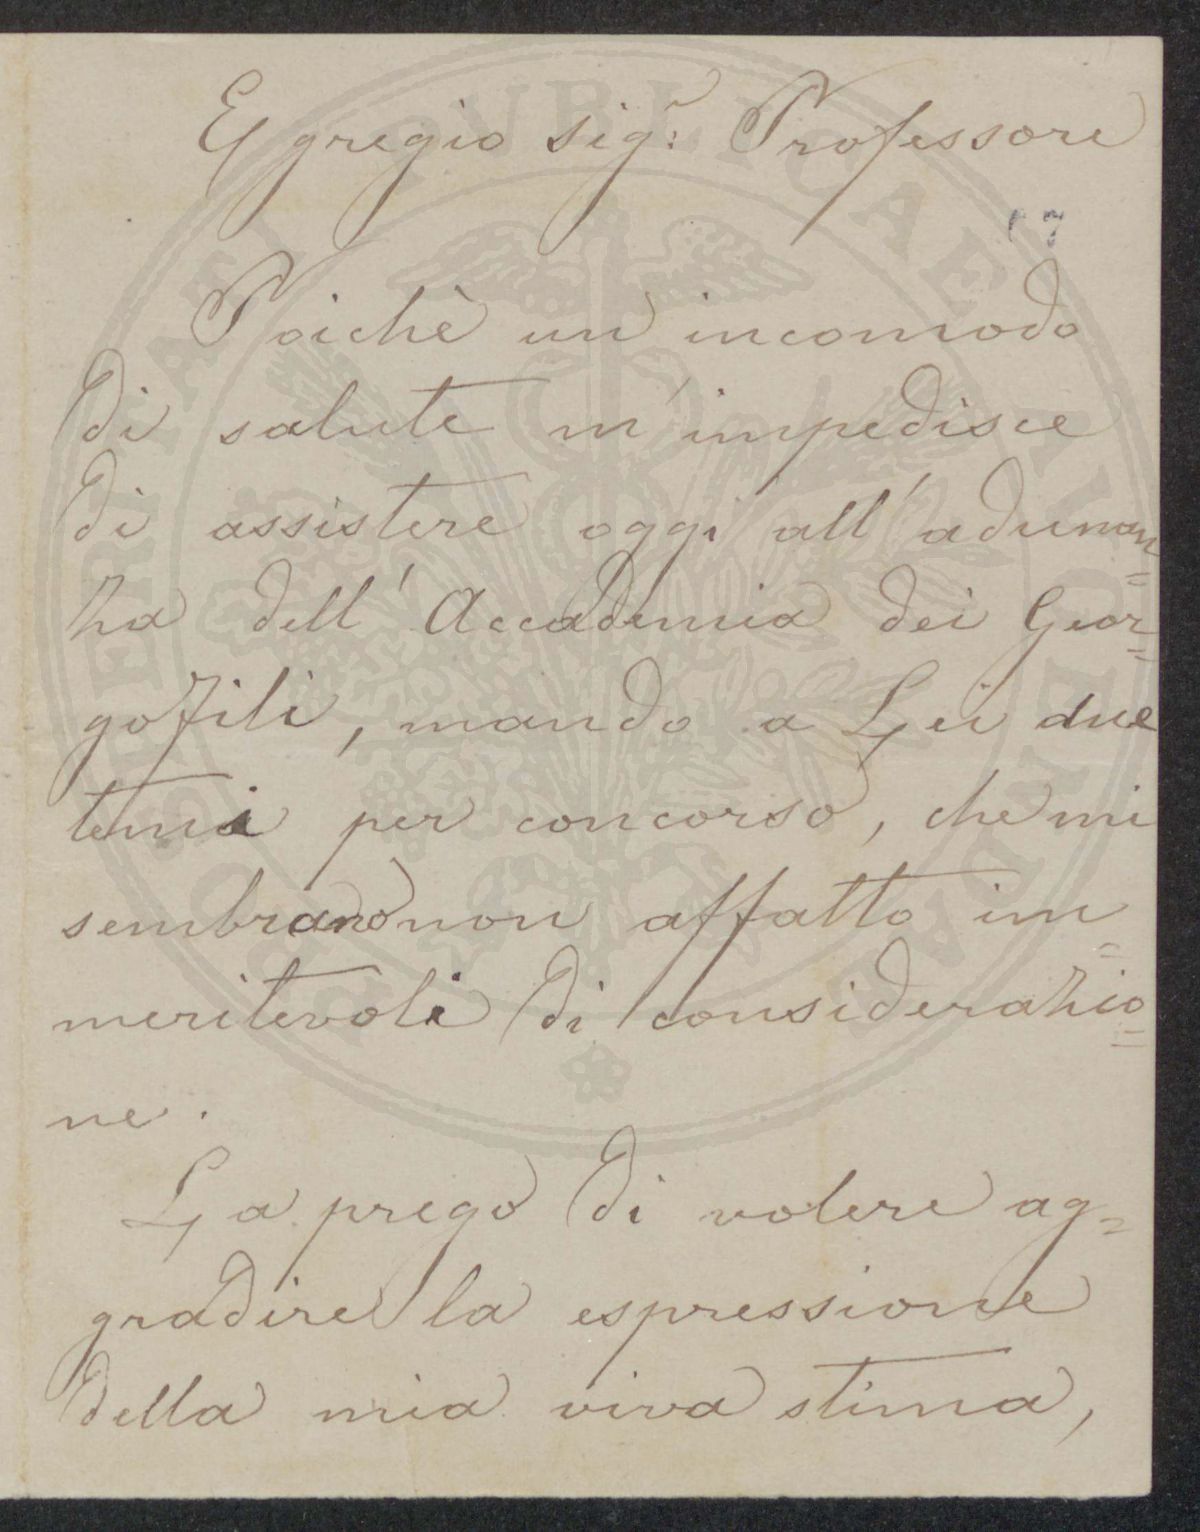 Egregio Sig.r Professore
Poichè un incomodo
di salute m'impedisce
di assistere oggi all'adunan=
za dell'Accademia dei Geor=
gofili, mando a Lei due
temi per concorso, che mi
sembrano non affatto im=
meritevoli di considerazio=
ne.
La prego di volere ag=
gradire la espressione
della mia viva stima,